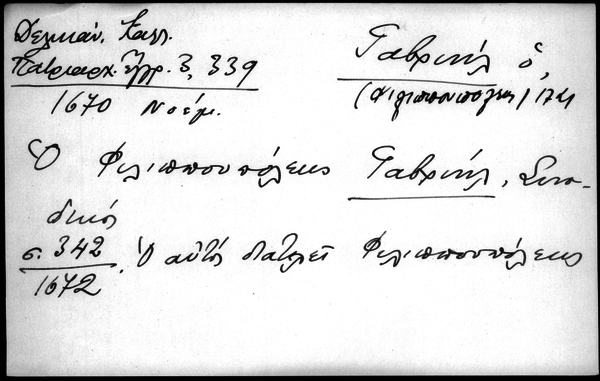 Δελικάν. Καλλ.
Πατριαρχ. Ἔγγρ. 3, 339
1670 Νοέμ.
Γαβριήλ ὁ,
(Φιλιππουπόλεως) 174
Ὁ Φιλιππουπόλεως Γαβριήλ, Συνο-
δικός
σ. 342
1672. Ὁ αὐτός διατελεῖ Φιλιππουπόλεως